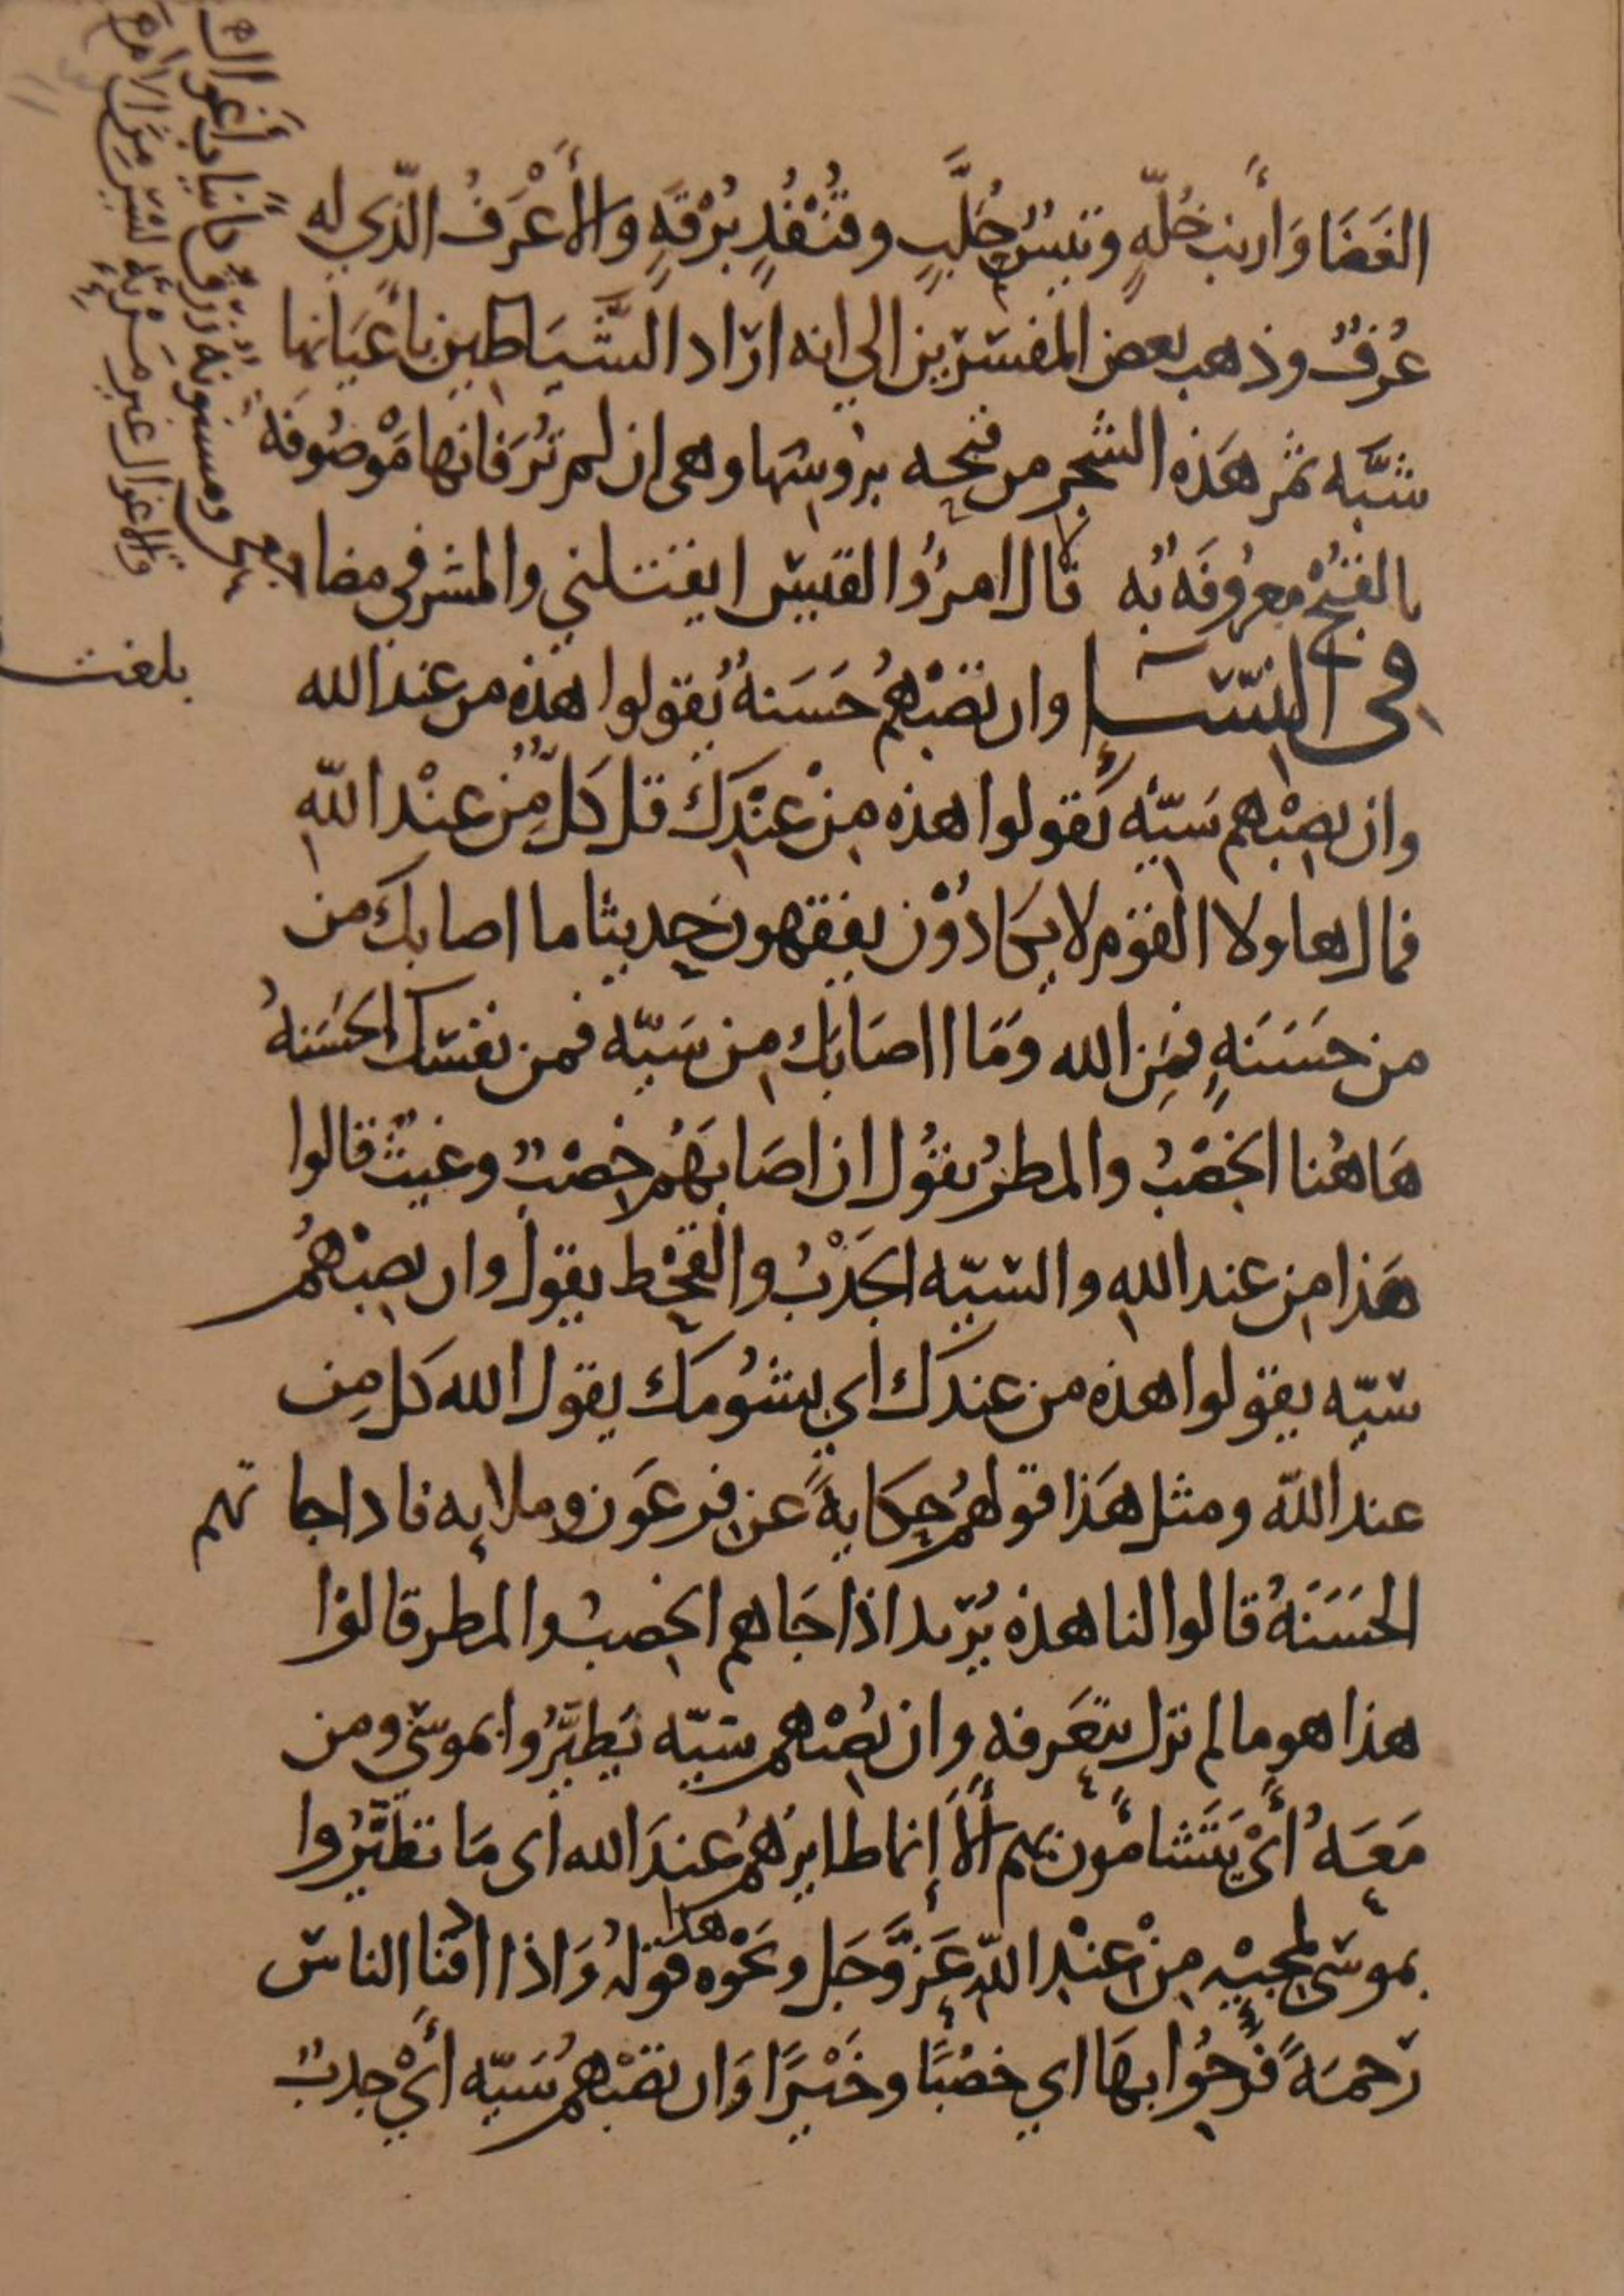 الغَضَا وَأرنب خُلّةٍ وتيسُ حُلَّبٍ وقُنْفُذِ بُرْقَةٍ والأَعْرَفُ الّذي له
عُرْفٌ وذهب بعض المفسّرين الى انه اراد الشَّيَاطين بأعيَانها
شبَّه ثمر هَذه الشجر من قبحه بروسها وهى ان لم تُرَ فانها مَوْصُوفَة
بالقبح معرُوفَةٌ به قال امرُؤ القيس ايقتلني والمشرفي مضاجعى
ومسنونة زُرْقٌ كأنياب أغوال
والاغوال غير مَرْئيّه
فى النّسَا وان تصبْهمُ حَسَنةٌ يَقولوا هذه من عند الله
وان تصبْهم سَيّئه يَقولوا هذه مِنْ عنْدِكَ قل كلٌّ مِّن عنْد اللّهِ
فمال هاولا القوْم لا يكَادُوْن يفقهون حديثا ما اصابكَ من
من حسَنَةٍ فمِن الله وَمَا ااصَابَك مِن سَيّه فمن نفسك الحَسَنةُ
هَاهُنا الخصْبُ والمطرُ يقُول ان اصَابَهُم خِصْبٌ وغيثٌ قالوا
هَذا مِن عند اللهِ والسّيّه الجَدْبُ والقَحْط يقول وان تصبْهمُ
سّيّه يقولوا هذه من عندك اي بشُومكَ يقول الله كل مِن
عند اللّه ومثل هَذا قولهمُ حِكايةً عن فِرعَون وملايه فاذا جا تهم
الحَسَنَةُ قالوا لنا هذه يُرّيد اذا جَاهم الخِصب والمطر قالوْا
هذا هو ما لم نزل نتعَرفه وان تُصِبْهم سّيّه يَطيَّرُوا بموسّى ومن
مَعَهُ أَيْ يَتَشَامُون بهم أَلاَ إنما طايرهُمُ عندَ الله اى مَا تطيَّرُوا
بموسَى لمجيْه مِنْ عنْدِ اللّهِ عَزَّ وَجَل ونحْوه هذا قولهُ وَاذا اذقنا الناسّ
رَحمَةً فَرِحُوا بهَا اي خصْبًا وخَيْرًا وَان تصبْهمُ سَيّه أَيْ جدبٌ
بلغت